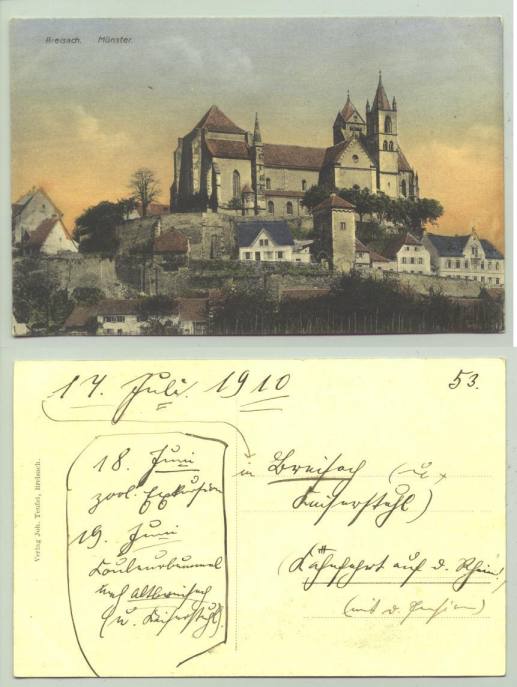 Breisach. Münster.
17. Juli. 1910
53.
Verlag Joh. Teufel, Breisach.
18. Juni
zool. Exkursion
19. Juni
Couleurbummel
nach Altbreisach
(u. Kaiserstuhl).
in Breisach (u.
Kaiserstuhl)
(Kahnfahrt auf d. Rhein)
(mit d.